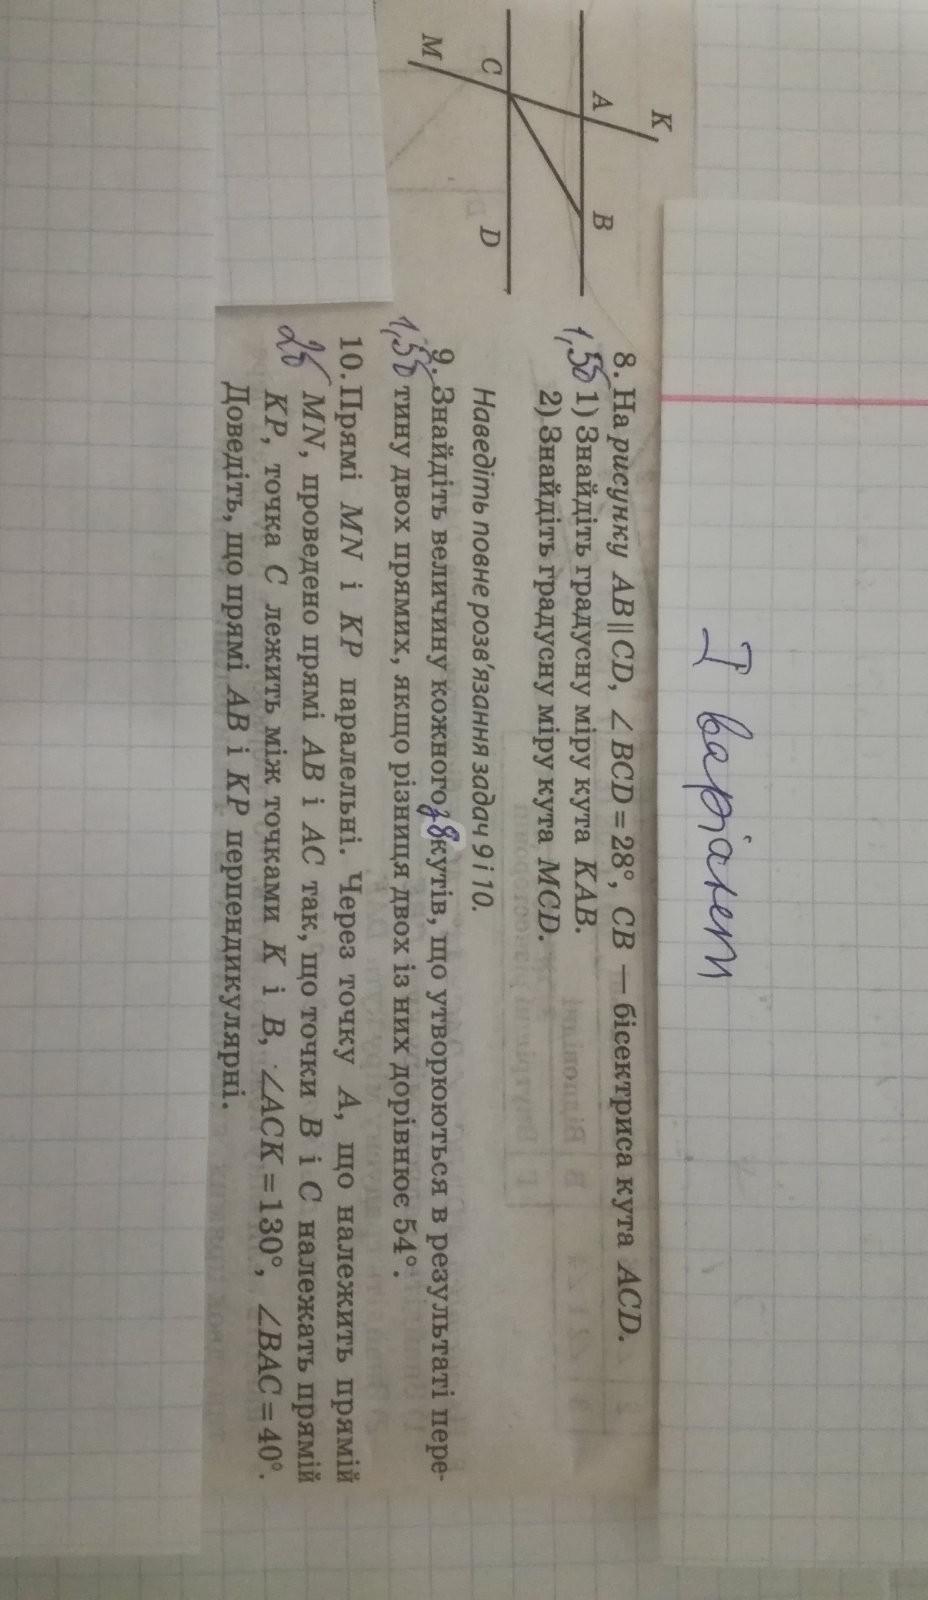 І варіант
K
A
B
C
D
M
8. На рисунку AB||CD, ∠BCD=28°, CB — бісектриса кута ACD.
1,5б 1) Знайдіть градусну міру кута KAB.
2) Знайдіть градусну міру кута MCD.
Наведіть повне розв'язання задач 9 і 10.
9. Знайдіть величину кожного з 8 кутів, що утворюються в результаті пере-
1,5б тину двох прямих, якщо різниця двох із них дорівнює 54°.
10. Прямі MN і KP паралельні. Через точку A, що належить прямій
2б MN, проведено прямі AB і AC так, що точки B і C належать прямій
KP, точка C лежить між точками K і B, ∠ACK=130°, ∠BAC=40°.
Доведіть, що прямі AB і KP перпендикулярні.